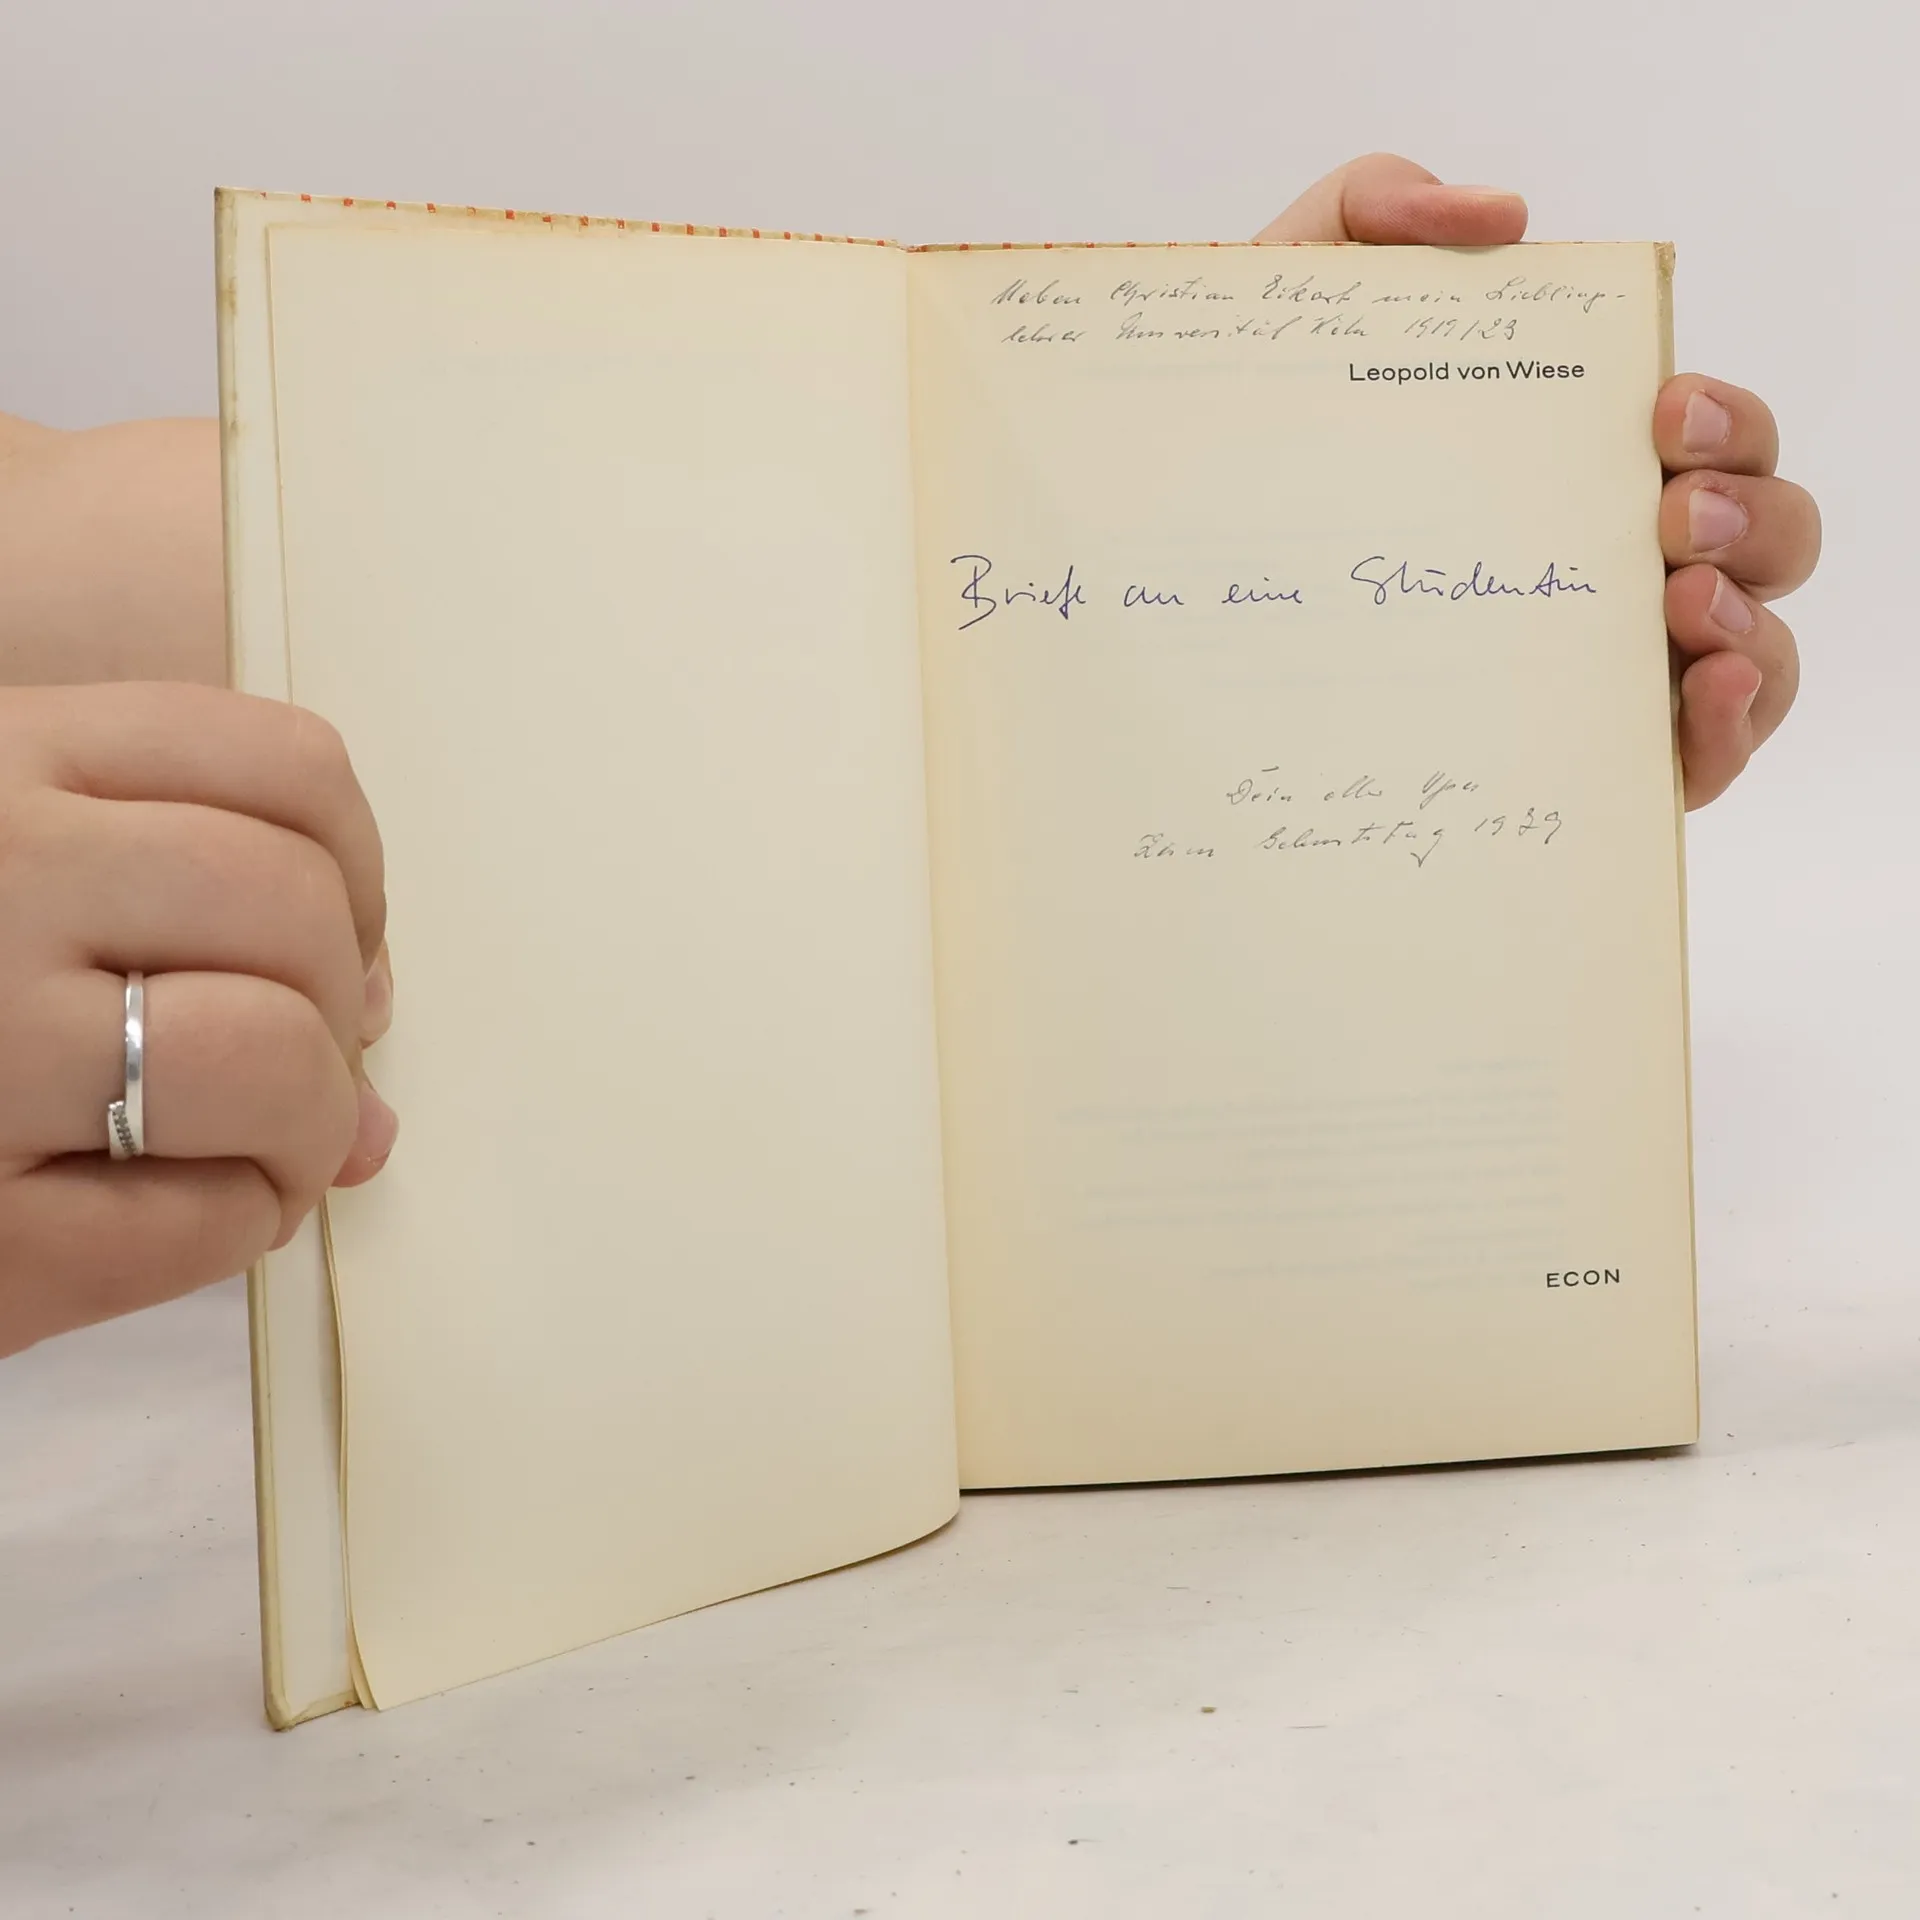 Neben Christian Eckert mein Liebling-
lehrer Universität Köln 1919/23
Leopold von Wiese
Briefe an eine Studentin
Dein alter Opa
Zum Geburtstag 1979
ECON